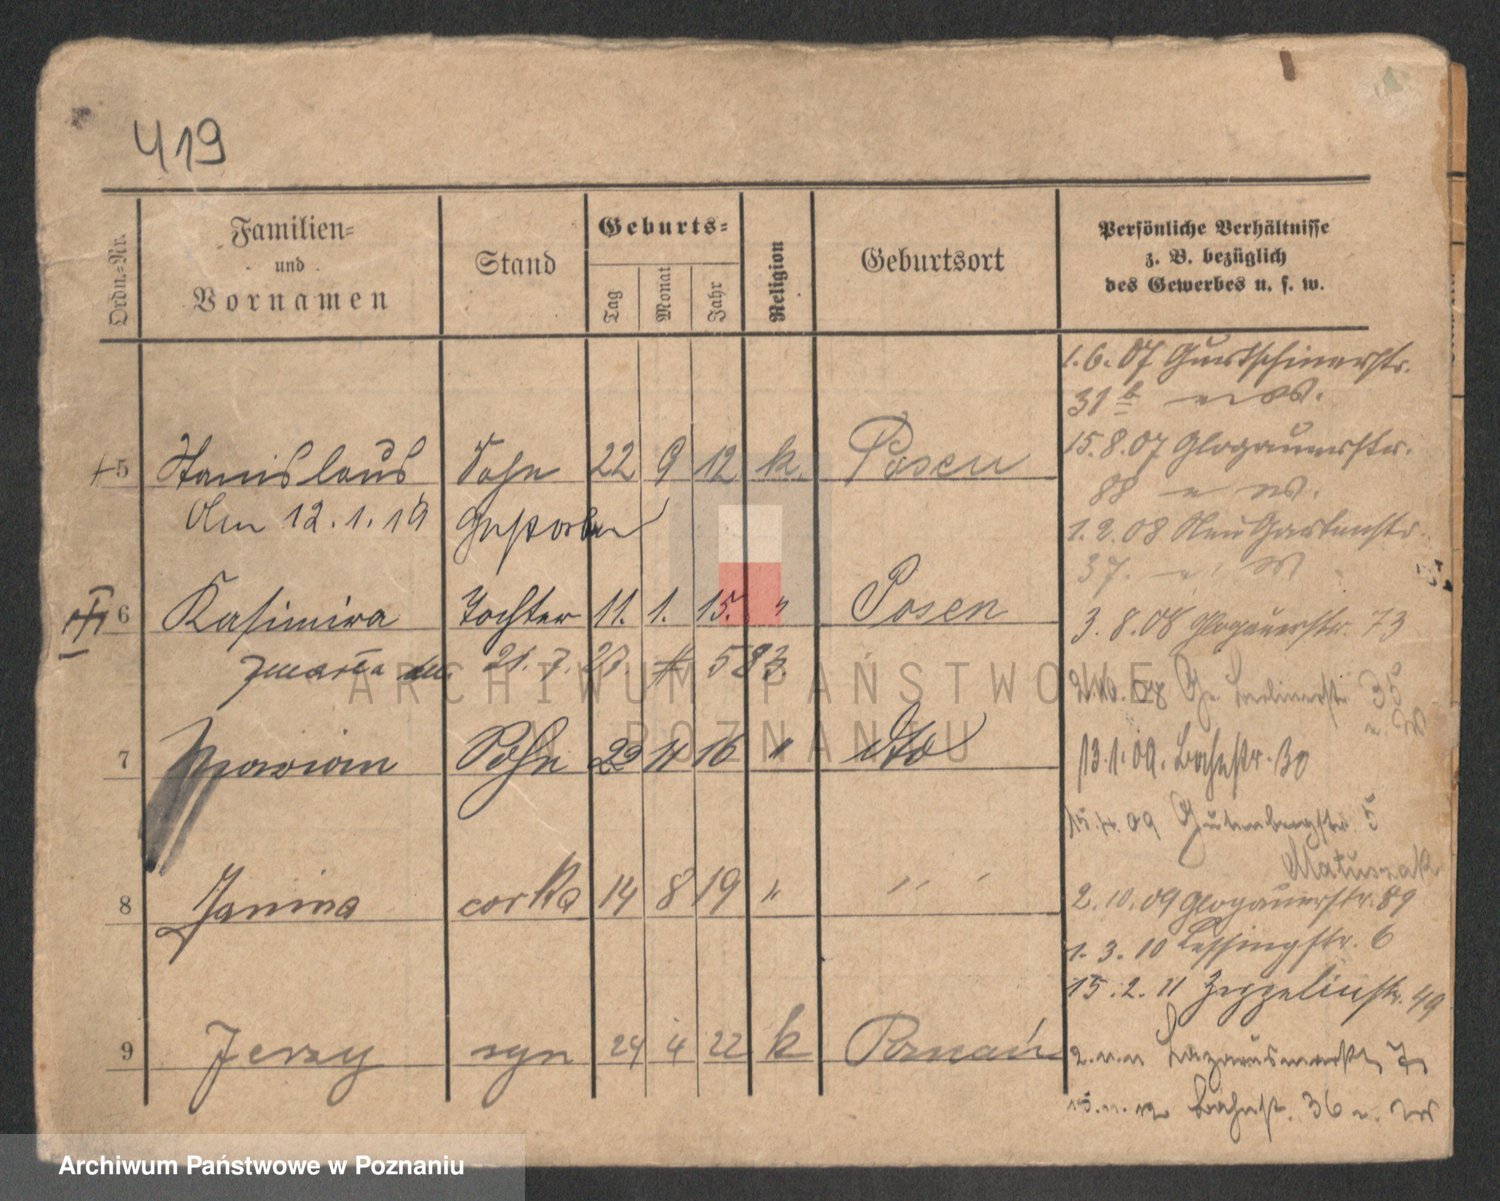 419
Ordn.-Nr.
Familien-
und
Vornamen
Stand
Geburts-
Tag
Monat
Jahr
Religion
Geburtsort
Persönliche Verhältnisse
z. B. bezüglich
des Gewerbes u. s. w.
5 Stanislaus Sohn 22 9 12 k. Posen
Am 12.1.19 Gestorben
6 Kasimira Tochter 11. 1. 15. " Posen
zmarła 21. 7. 583
7 Marian Sohn 11 16 " dto
8 Janina corka 14 8 19 " " "
9 Jerzy syn 24 4 22 k Poznań
1.6.07 Gurtschinerstr.
31
15.8.07 Glogauerstr.
88
1.2.08 Neu Gartenstr.
37.
3.8.08 Glogauerstr. 73
Berlinerstr. 35
13.1.09. Bahnstr. 30
15.4.09 Gutenbergstr. 5
Matuszak
2.10.09 Glogauerstr. 89
1.3.10 Lessingstr. 6
15.2.11 Zeppelinstr. 49
Lazarusmarkt 7
Bahnst. 36
ARCHIWUM PAŃSTWOWE
W POZNANIU
Archiwum Państwowe w Poznaniu